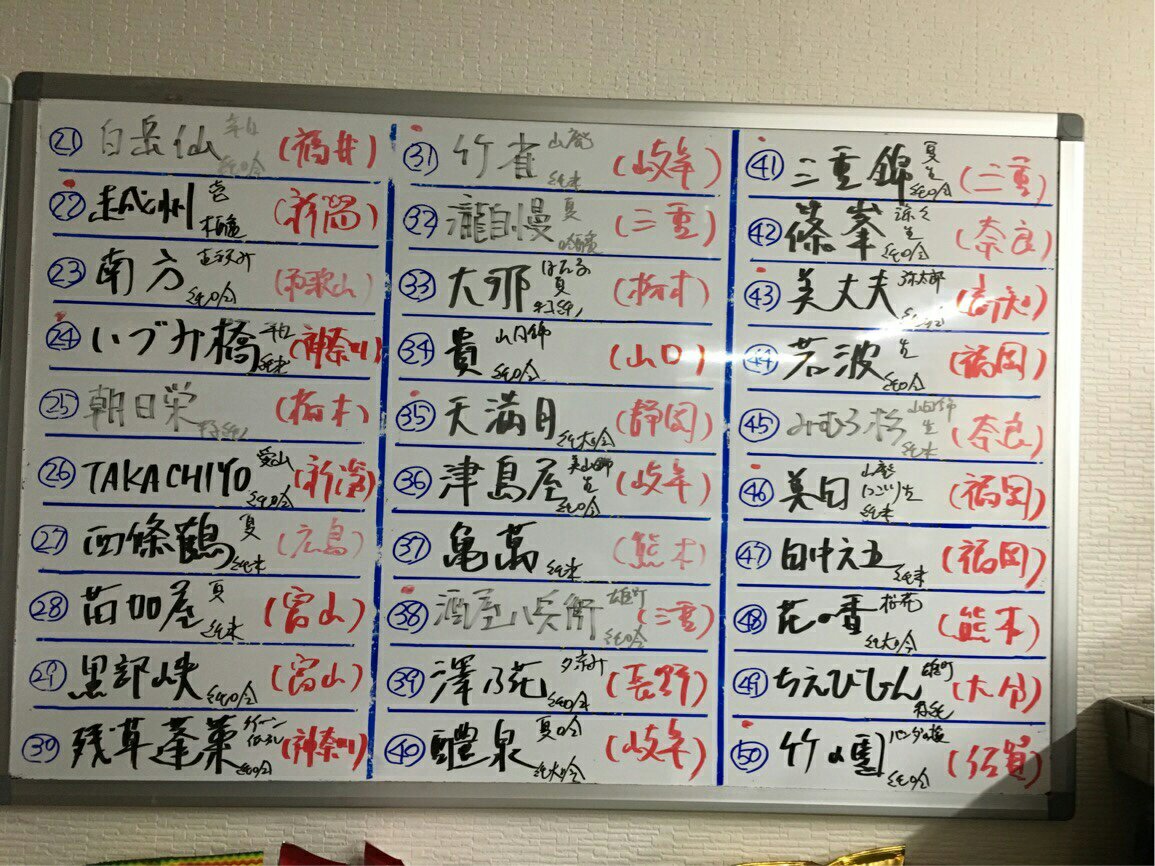 ㉑ 白岳仙 純吟 (福井)
㉒ 越州 (新潟)
㉓ 南方 純吟 (和歌山)
㉔ いづみ橋 純米 (神奈川)
㉕ 朝日栄 (栃木)
㉖ TAKACHIYO 愛山 純吟 (新潟)
㉗ 西條鶴 夏 純米 (広島)
㉘ 苗加屋 夏 純米 (富山)
㉙ 黒部峡 純吟 (富山)
㉚ 残草蓬莱 クイーン 純吟 (神奈川)
㉛ 竹雀 山廃 純米 (岐阜)
㉜ 瀧自慢 夏 (三重)
㉝ 大那 夏 特純 (栃木)
㉞ 貴 山田錦 純吟 (山口)
㉟ 天満月 純大吟 (静岡)
㊱ 津島屋 美山錦 生 純吟 (岐阜)
㊲ 亀萬 純米 (熊本)
㊳ 酒屋八兵衛 雄町 純吟 (三重)
㊴ 澤乃花 夕涼み 純吟 (長野)
㊵ 醴泉 夏吟 純大吟 (岐阜)
㊶ 三重錦 夏 生 純吟 (三重)
㊷ 篠峯 涼々 生 純吟 (奈良)
㊸ 美丈夫 弥太郎 (高知)
㊹ 若波 生 純吟 (福岡)
㊺ みむろ杉 山田錦 生 純米 (奈良)
㊻ 美田 山廃 にごり生 純米 (福岡)
㊼ 田中六五 純米 (福岡)
㊽ 花の香 桜花 純大吟 (熊本)
㊾ ちえびじん 雄町 特純 (大分)
㊿ 竹の園 パンダの掟 純吟 (佐賀)